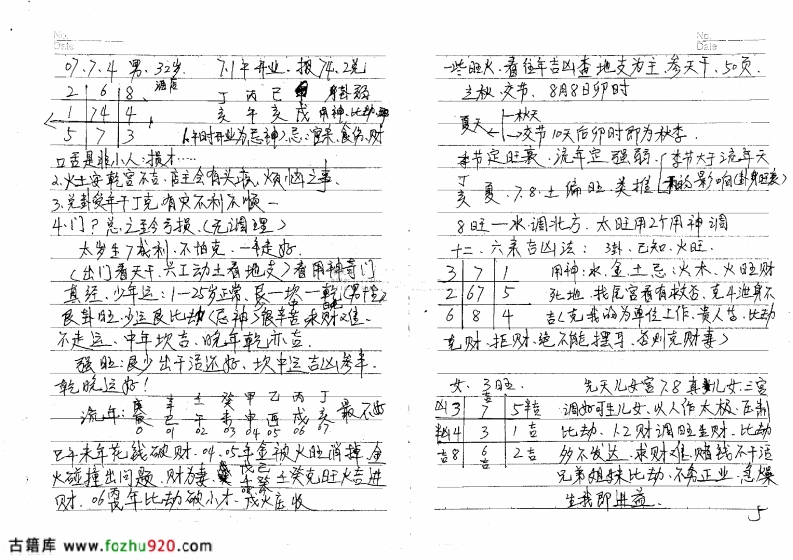 No.
Date
07.7.4 男、32岁 7.1午开业、报74、2兑
2 6 8 酒店 丁 丙 己 身卦弱
1 74 4 亥 午 亥 戌 用神、比劫
5 7 3 (午时开业为忌神)忌:官杀、食伤、财
口舌是非小人:损才……
2.火土安乾宫不吉、店主会有头疼、烦恼之事、
3.兑卦 年干丁克、有灾不利不顺一
4.门?总之至今亏损、(无调理)
太岁生7成利、不怕克、一年走好、
(出门看天干、六工动土看地支)看用神奇门
真经、少年运:1—25岁正常、艮—坎—乾(男
艮卦旺、少运艮比劫(忌神)很辛苦求财又难、
不走运、中年坎吉、晚年乾亦吉、
强旺:艮少出干活还好、坎中运吉凶参半、
乾晚运好!
流年: 庚 辛 壬 癸 甲 乙 丙 丁 最不好
辰 巳 午 未 申 酉 戌 亥
00 01 02 03 04 05 06 07
巳午未年花钱破财、04、05年金被火旺消掉、金
火碰撞出问题、财为妻、 土癸克旺火吉进
财、06 年比劫破小才、戊火库收
No.
Date
些旺火、看住年吉凶查地支为主、参天干、50页、
立秋、交节、8月8日卯时
夏天 秋天
交节10天后卯时即为秋季、
季节定旺衰、流年定强弱、(季节大于流年天
丁
亥 夏、7.8、土偏旺、类推 的影响(卦身旺衰)
8旺—水调北方、太旺用2个用神调
十二、六亲吉凶法: 3卦、已知、火旺、
3 7 1 用神:水、金土忌:火木、火旺财
2 67 5 死地、找尾宫看有救否、克4泄身不
6 8 4 吉(克我的为单位工作、贵人官、比劫
克财、拒财、绝不能摆马、否则克财妻)
女、3旺、 先天儿女宫7.8真 儿女三宫
凶3 7吉 5半吉 调好可生儿女、以人作太极、压制
4 3 1吉 比劫、1.2财调旺生财、比劫
吉8 6吉 2吉 多不发达、求财难、赌钱不干活
兄弟姐妹比劫、不务正业、急燥
生我即进益、
5
古籍库 www.fozhu920.com